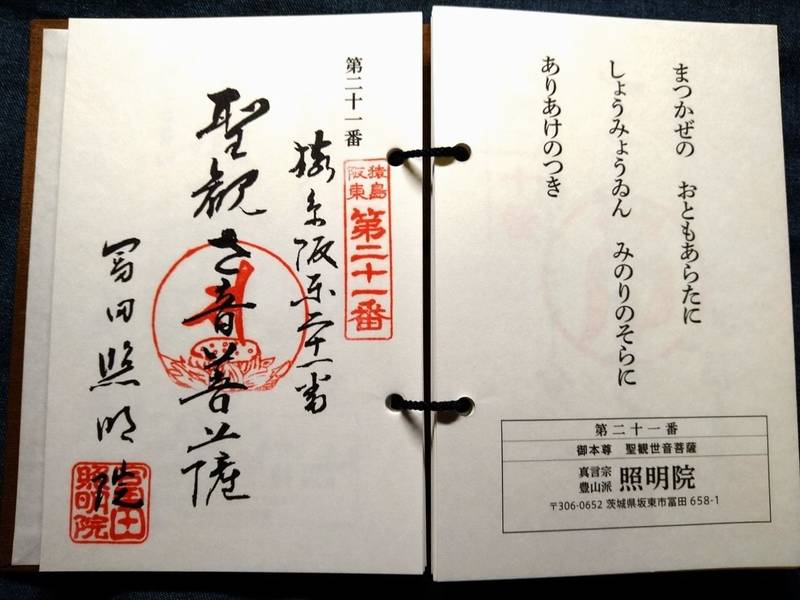 まつかぜの　おともあらたに
しょうみょうゐん　みのりのそらに
ありあけのつき
第二十一番
御本尊　聖観世音菩薩
真言宗
豊山派
照明院
〒306-0652 茨城県坂東市冨田 658-1
第二十一番
猿島
阪東
第二十一番
猿島阪東二十一番
聖観世音菩薩
冨田照明院
冨田
照明院